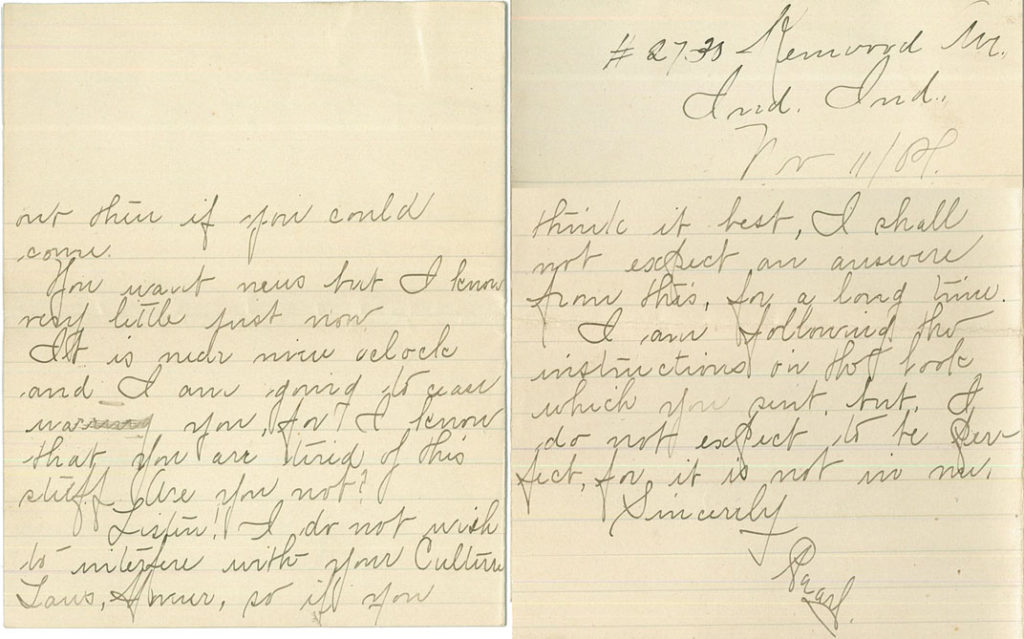 out there if you could
come.
You want news but I know
very little just now
It is near nine oclock
and I am going to cease
you, for I know
that you are tired of this
stuff. Are you not?
Listen! I do not wish
to interfere with your Culture
Laws, so if you
# Kenwood Av.
Ind. Ind.,
Nov 11/
think it best, I shall
not expect an answere
from this, for a long time.
I am following the
instructions in the book
which you sent, but, I
do not expect to be per-
fect, for it is not in me.
Sincerely
Pearl.